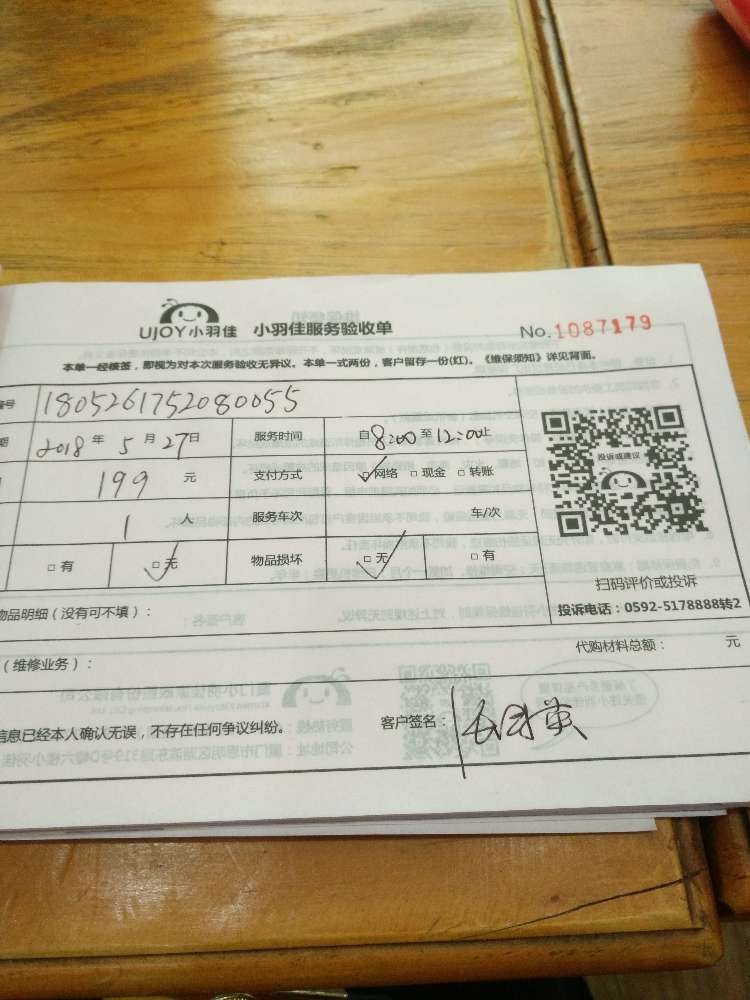 UJOY小羽佳 小羽佳服务验收单 No.1087179
本单一经核签，即视为对本次服务验收无异议。本单一式两份，客户留存一份(红)。《维保须知》详见背面。
编号 1805261752080055
期 2018 年 5 月 27日 服务时间 自8:00至12:00止
199 元 支付方式 ☑网络 □现金 □转账
1 人 服务车次 车/次
□有 ☑无 物品损坏 ☑无 □有
投诉或建议
扫码评价或投诉
投诉电话：0592-5178888转2
物品明细（没有可不填）：
（维修业务）： 代购材料总额： 元
信息已经本人确认无误，不存在任何争议纠纷。 客户签名：